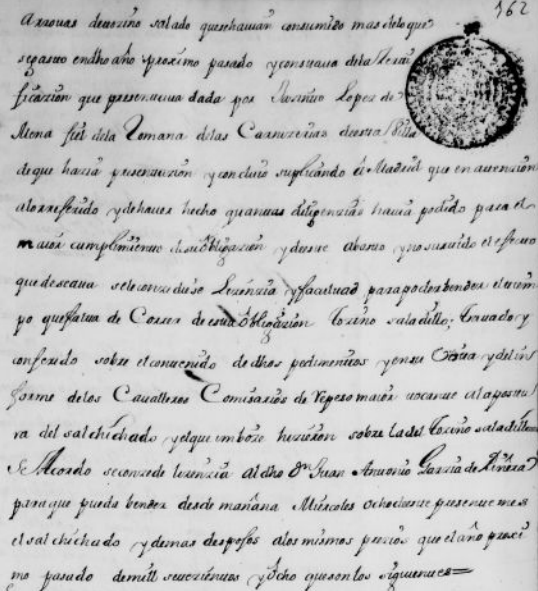 362
Arrouas de tozino salado que se hauian consumido mas de lo que
se gasto en dho año proximo pasado y constaua de la Zerti
ficazion que presentaua dada por Lopez de
Mena fiel de la Romana de las Carnizerias de esta Villa
de que hazia presentazion y concluio suplicando a Madrid que en atenzion
a lo referido y de hauer hecho quantas diligenzias hauia podido para el
maior cumplimiento de su obligazion y de este abasto y no surtido el efecto
que deseaua se le conzediese Lizenzia y facultad para poder bender el tiem
po que falta de Correr de esta obligazion Tozino saladillo; Tratado y
conferido sobre el contenido de dhos pedimentos y en su vista y del in
forme de los Caualleros Comisarios de repeso maior tocante a la postu
ra del salchichado y el que imboze hizieron sobre la del tozino saladillo
Se Acordo se conzede lizenzia al dho Dn Juan Antonio Garzia de
para que pueda bender desde mañana Miercoles ocho de este presente mes
el salchichado y demas despojos a los mismos prezios que el año proxi
mo pasado de mill setezientos y ocho que son los siguientes=